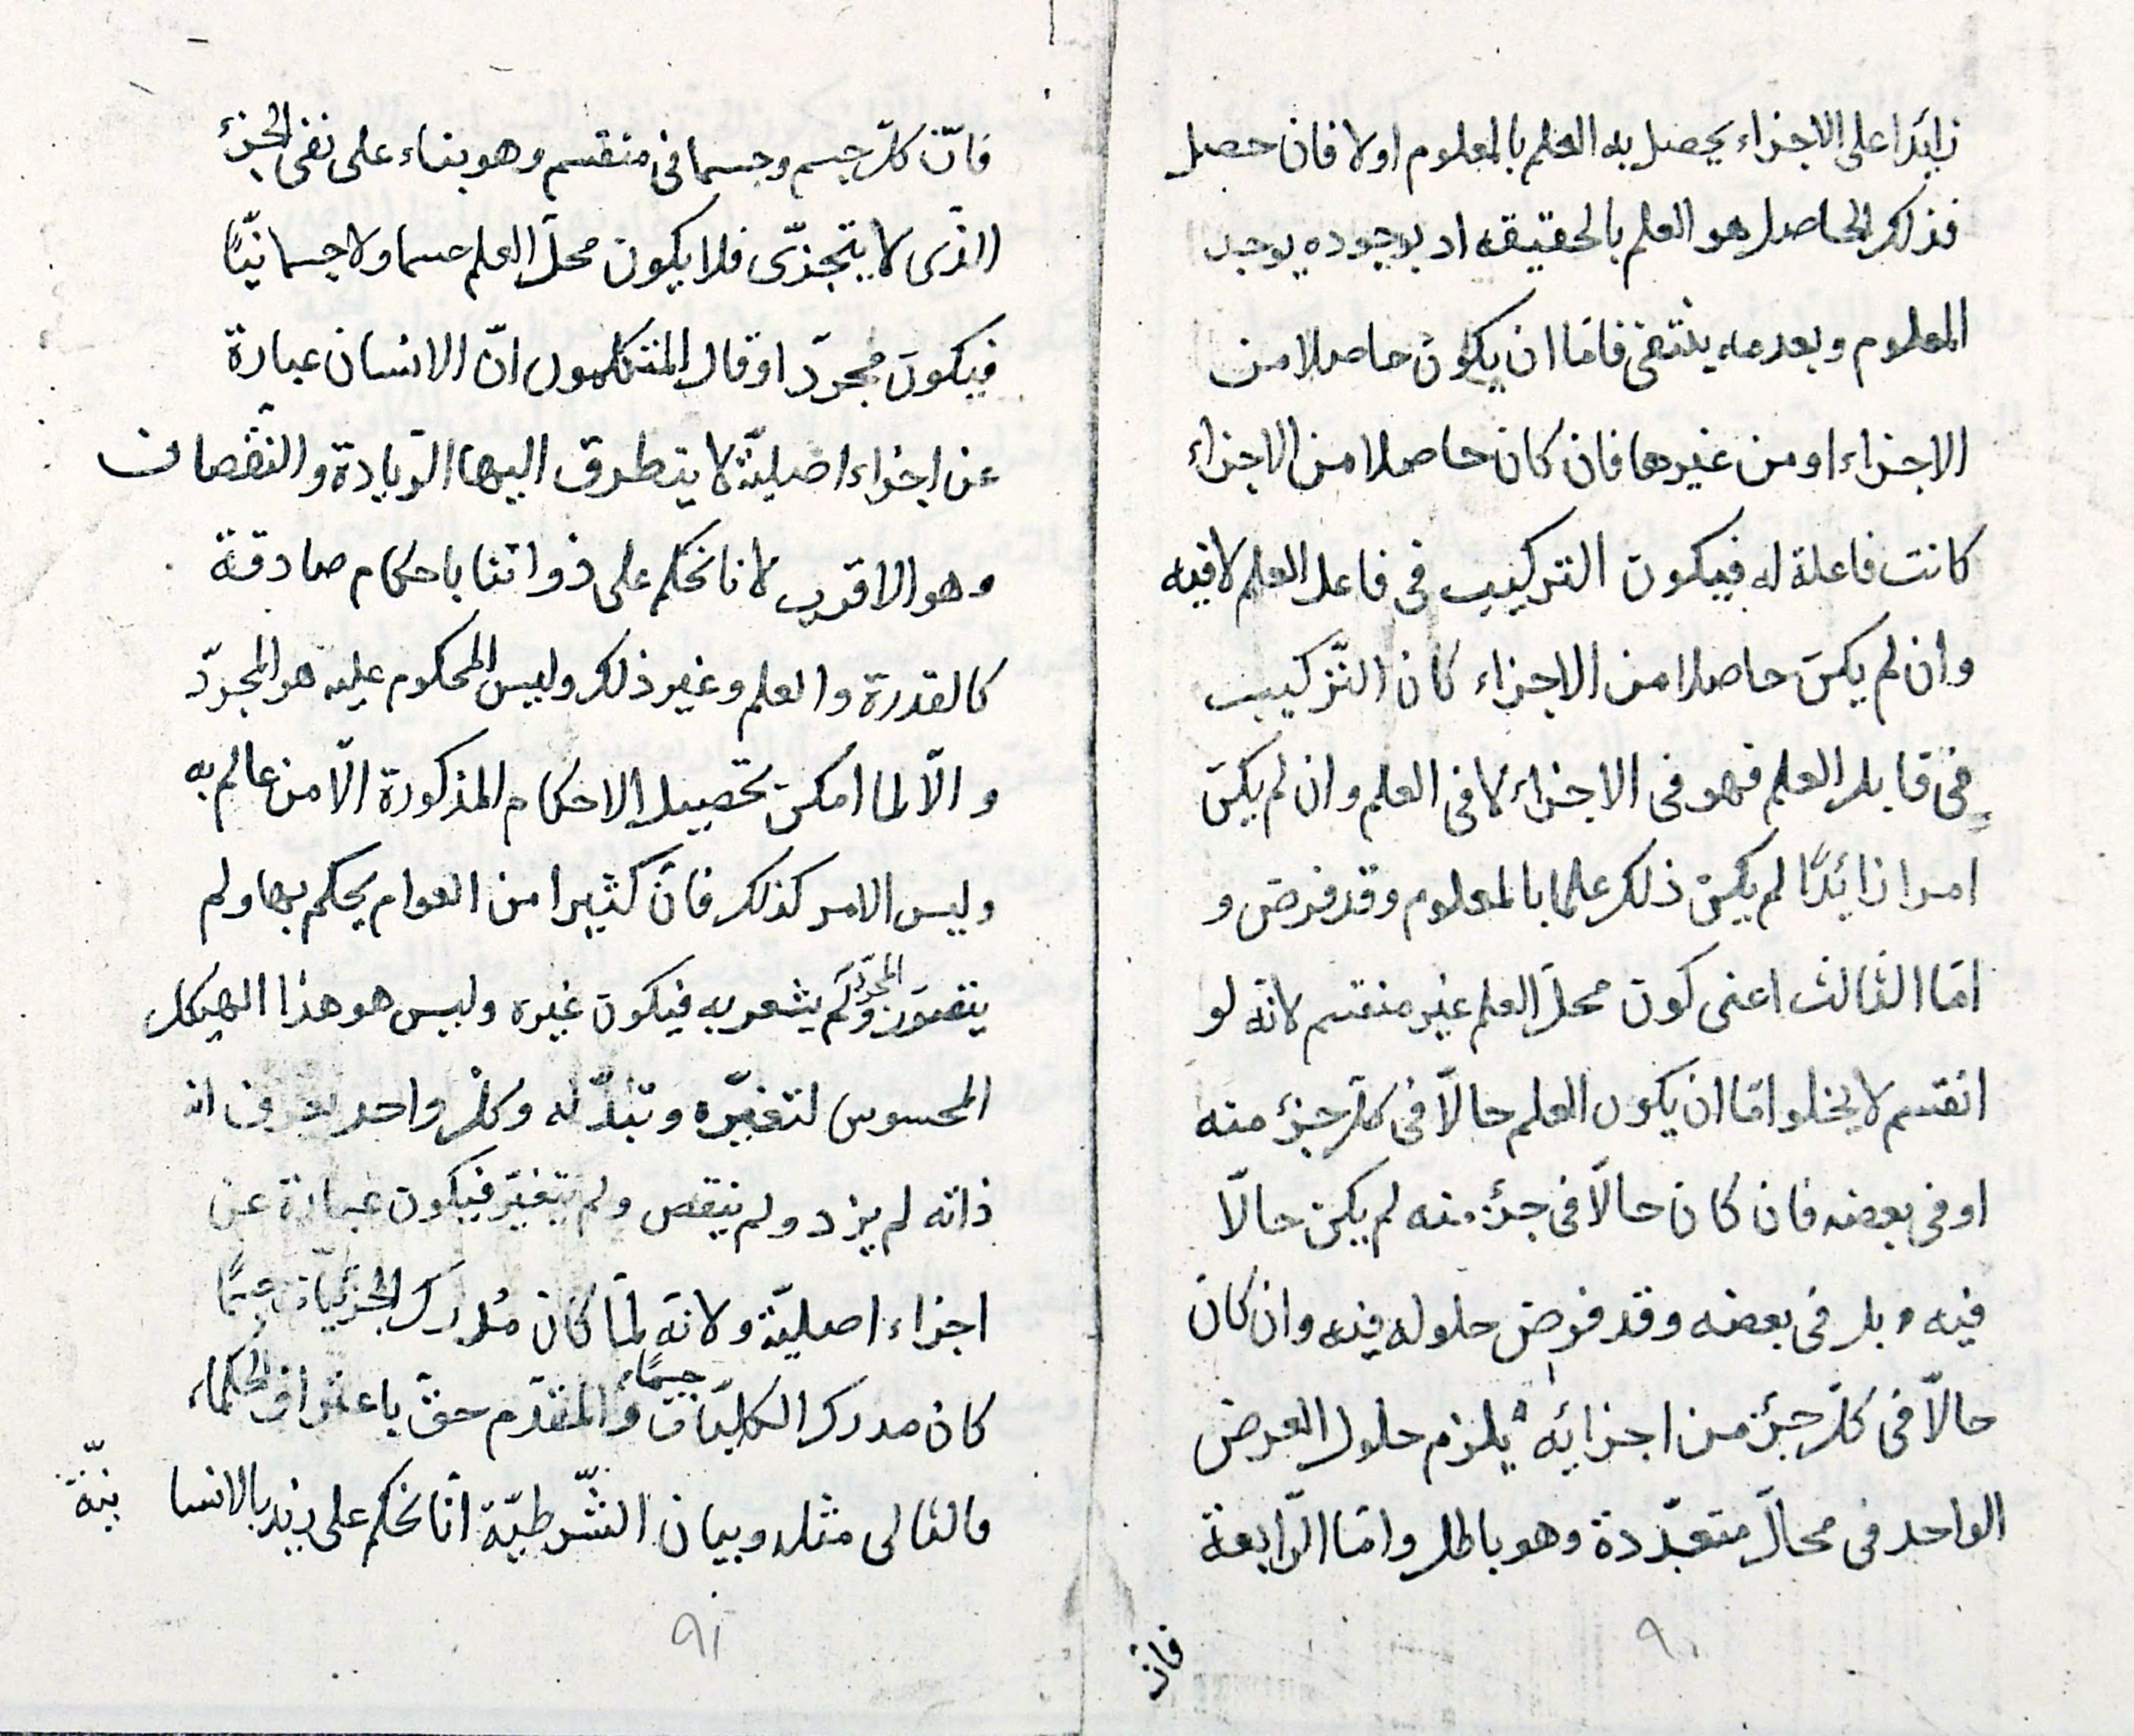 زائدا على الاجزاء يحصل به العلم بالمعلوم اولا فان حصل
فذلك الحاصل هو العلم بالحقيقه اد بوجوده يوجد
المعلوم وبعدمه ينتفى فامّا ان يكون حاصلا من
الاجزاء او من غيرها فان كان حاصلا من الاجزاء
كانت فاعلة له فيكون التركيب فى فاعل العلم لا فيه
وان لم يكن حاصلا من الاجزاء كان التّركيب
فى قابل العلم فهو فى الاجزاء لا فى العلم وان لم يكن
امرا زائدًا لم يكن ذلك علما بالمعلوم وقد فرض و
امّا الثالث اعنى كون محلّ العلم غير منقسم لانّه لو
انقسم لا يخلو امّا ان يكون العلم حالّا فى كلّ جزء منه
او فى بعضه فان كان حالّا فى جزء منه لم يكن حالّا
فيه و بل فى بعضه وقد فرض حلوله فيه وان كان
حالّا فى كلّ جزء من اجزائه يلزم حلول العرض
الواحد فى محالّ متعدّدة وهو باطل وامّا الرّابعة
٩٠
فان
فانّ كلّ جسم وجسمانى منقسم وهو بناء على نفى الجزء
الّذى لا يتجزّى فلا يكون محلّ العلم جسما ولا جسمانيًّا
فيكون مجرّدا وقال المتكلمون انّ الانسان عبارة
عن اجزاء اصليّة لا يتطرق اليها الزيادة والنّقصان
وهو الاقرب لانا نحكم على ذواتنا باحكام صادقة
كالقدرة والعلم وغير ذلك وليس المحكوم عليه هو المجرّد
والّا لما امكن تحصيل الاحكام المذكورة الّا من عالم به
وليس الامر كذلك فانّ كثيرا من العوام يحكم بها ولم
يتصوّر المجرّد ولم يشعر به فيكون غيره وليس هو هذا الهيكل
المحسوس لتغيّره وتبدّله وكلّ واحد يعرف ان
ذاته لم يزد ولم ينقص ولم يتغيّر فيكون عبارة عن
اجزاء اصليّة ولانّه لمّا كان مُدرك الجزئيّات جسمًا
كان مدرك الكليّات جسمًا والمقدّم حقّ باعتراف الحكماء
فالتالى مثله وبيان الشّرطيّة انّا نحكم على زيد بالانسا نيّة
٩١